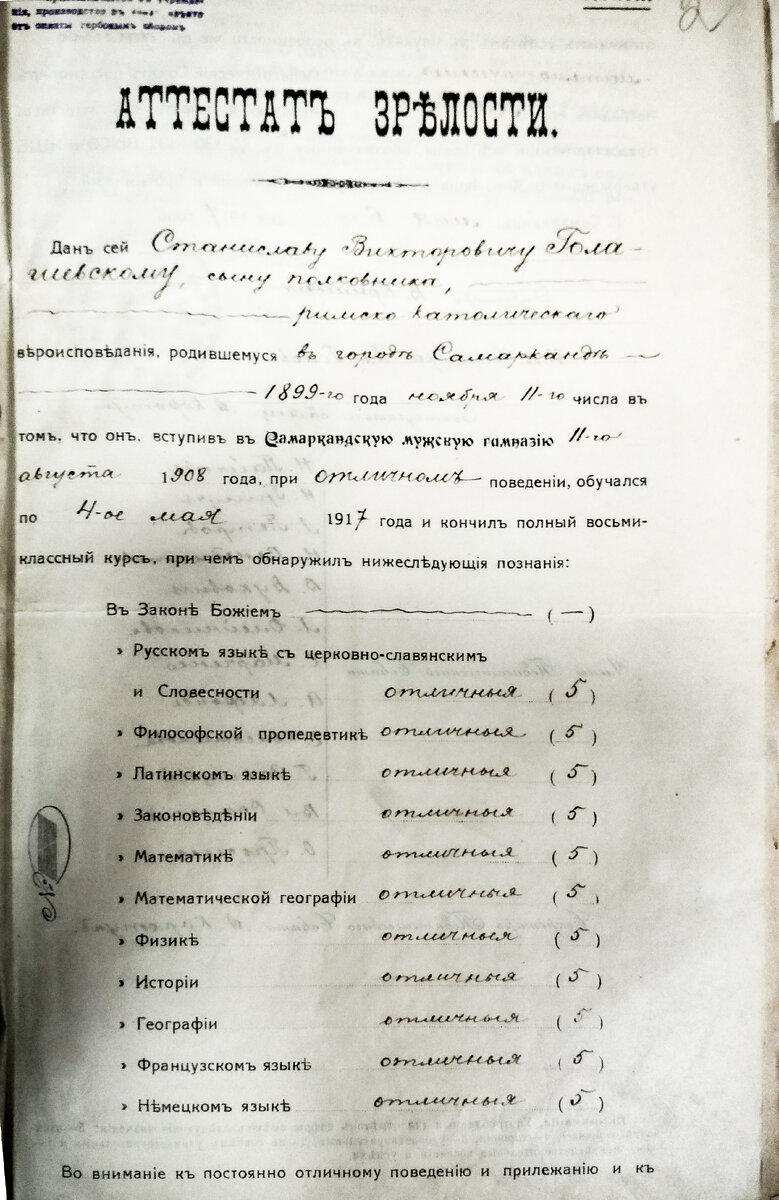 нія, производства въ
отъ оплаты гербовымъ сборомъ
2
АТТЕСТАТЪ ЗРѢЛОСТИ.
Данъ сей Станиславу Викторовичу Гола-
шевскому, сыну полковника,
римско католическаго
вѣроисповѣданія, родившемуся въ городѣ Самаркандѣ
1899-го года ноября 11-го числа въ
томъ, что онъ, вступивъ въ Самаркандскую мужскую гимназію 11-го
августа 1908 года, при отличномъ поведеніи, обучался
по 4-ое мая 1917 года и кончил полный восьми-
классный курсъ, при чемъ обнаружил нижеслѣдующія познанія:
Въ Законѣ Божіемъ (—)
» Русскомъ языкѣ съ церковно-славянскимъ
и Словесности отличныя (5)
» Философской пропедевтикѣ отличныя (5)
» Латинскомъ языкѣ отличныя (5)
» Законовѣдѣніи отличныя (5)
» Математикѣ отличныя (5)
» Математической географіи отличныя (5)
» Физикѣ отличныя (5)
» Исторіи отличныя (5)
» Географіи отличныя (5)
» Французскомъ языкѣ отличныя (5)
» Нѣмецкомъ языкѣ отличныя (5)
№
Во вниманіе къ постоянно отличному поведенію и прилежанію и къ